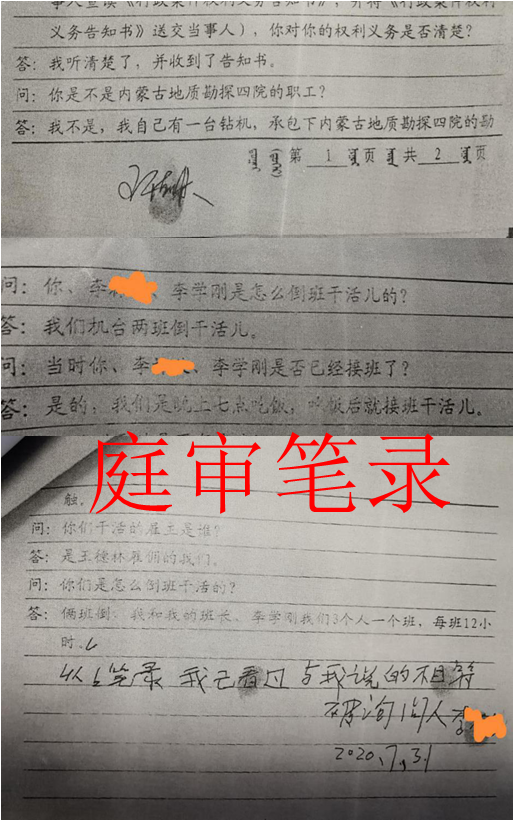 事人宣读《行政案件权利义务告知书》,并将《行政案件权利
义务告知书》送交当事人),你对你的权利义务是否清楚?
答:我听清楚了,并收到了告知书。
问:你是不是内蒙古地质勘探四院的职工?
答:我不是,我自己有一台钻机,承包下内蒙古地质勘探四院的勘
第 1 页 共 2 页
问:你、李 、李学刚是怎么倒班干活儿的?
答:我们机台两班倒干活儿。
问:当时你、李 、李学刚是否已经接班了?
答:是的,我们是晚上七点吃饭,吃饭后就接班干活儿。
庭审笔录
触。
问:你们干活的雇主是谁?
答:是王德林雇佣的我们。
问:你们是怎么倒班干活的?
答:俩班倒,我和我的班长、李学刚我们3个人一个班,每班12小
时。
以上笔录我已看过与我说的相符
被询问人李
2020.7.31